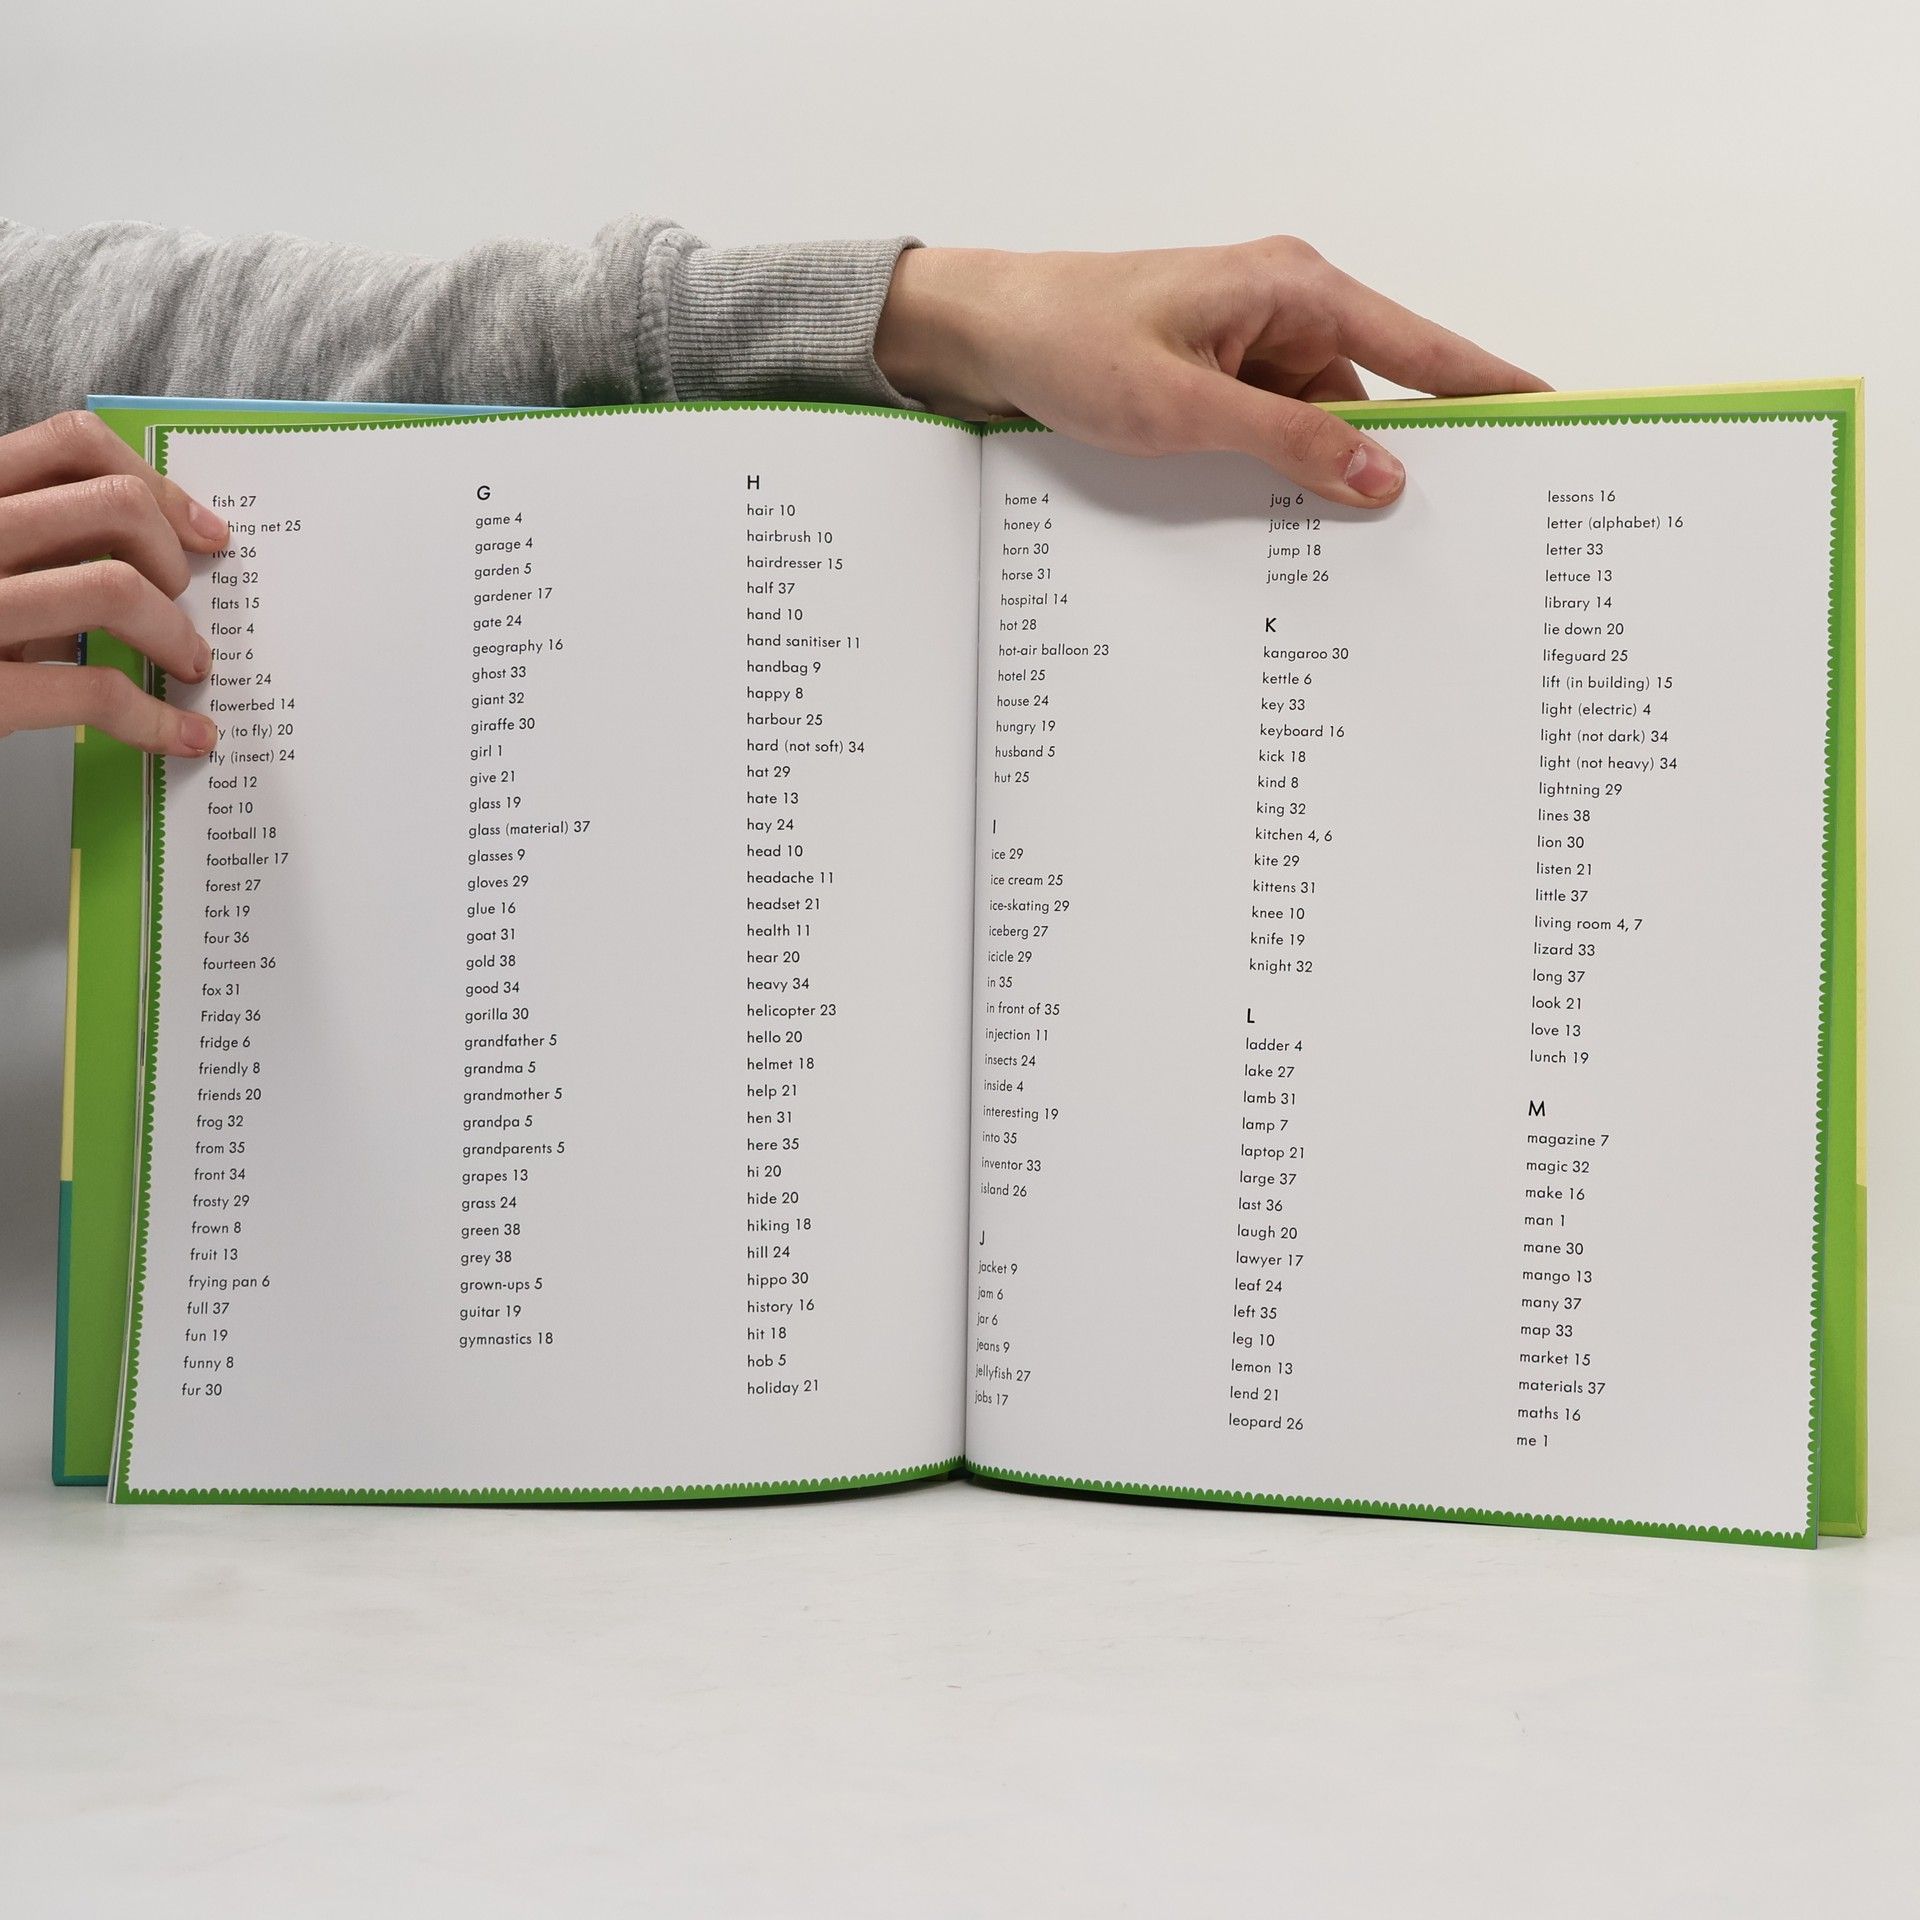 fish 27
hing net 25
five 36
flag 32
flats 15
floor 4
flour 6
flower 24
flowerbed 14
fly (to fly) 20
fly (insect) 24
food 12
foot 10
football 18
footballer 17
forest 27
fork 19
four 36
fourteen 36
fox 31
Friday 36
fridge 6
friendly 8
friends 20
frog 32
from 35
front 34
frosty 29
frown 8
fruit 13
frying pan 6
full 37
fun 19
funny 8
fur 30
G
game 4
garage 4
garden 5
gardener 17
gate 24
geography 16
ghost 33
giant 32
giraffe 30
girl 1
give 21
glass 19
glass (material) 37
glasses 9
gloves 29
glue 16
goat 31
gold 38
good 34
gorilla 30
grandfather 5
grandma 5
grandmother 5
grandpa 5
grandparents 5
grapes 13
grass 24
green 38
grey 38
grown-ups 5
guitar 19
gymnastics 18
H
hair 10
hairbrush 10
hairdresser 15
half 37
hand 10
hand sanitiser 11
handbag 9
happy 8
harbour 25
hard (not soft) 34
hat 29
hate 13
hay 24
head 10
headache 11
headset 21
health 11
hear 20
heavy 34
helicopter 23
hello 20
helmet 18
help 21
hen 31
here 35
hi 20
hide 20
hiking 18
hill 24
hippo 30
history 16
hit 18
hob 5
holiday 21
home 4
honey 6
horn 30
horse 31
hospital 14
hot 28
hot-air balloon 23
hotel 25
house 24
hungry 19
husband 5
hut 25
I
ice 29
ice cream 25
ice-skating 29
iceberg 27
icicle 29
in 35
in front of 35
injection 11
insects 24
inside 4
interesting 19
into 35
inventor 33
island 26
J
jacket 9
jam 6
jar 6
jeans 9
jellyfish 27
jobs 17
jug 6
juice 12
jump 18
jungle 26
K
kangaroo 30
kettle 6
key 33
keyboard 16
kick 18
kind 8
king 32
kitchen 4, 6
kite 29
kittens 31
knee 10
knife 19
knight 32
L
ladder 4
lake 27
lamb 31
lamp 7
laptop 21
large 37
last 36
laugh 20
lawyer 17
leaf 24
left 35
leg 10
lemon 13
lend 21
leopard 26
lessons 16
letter (alphabet) 16
letter 33
lettuce 13
library 14
lie down 20
lifeguard 25
lift (in building) 15
light (electric) 4
light (not dark) 34
light (not heavy) 34
lightning 29
lines 38
lion 30
listen 21
little 37
living room 4, 7
lizard 33
long 37
look 21
love 13
lunch 19
M
magazine 7
magic 32
make 16
man 1
mane 30
mango 13
many 37
map 33
market 15
materials 37
maths 16
me 1